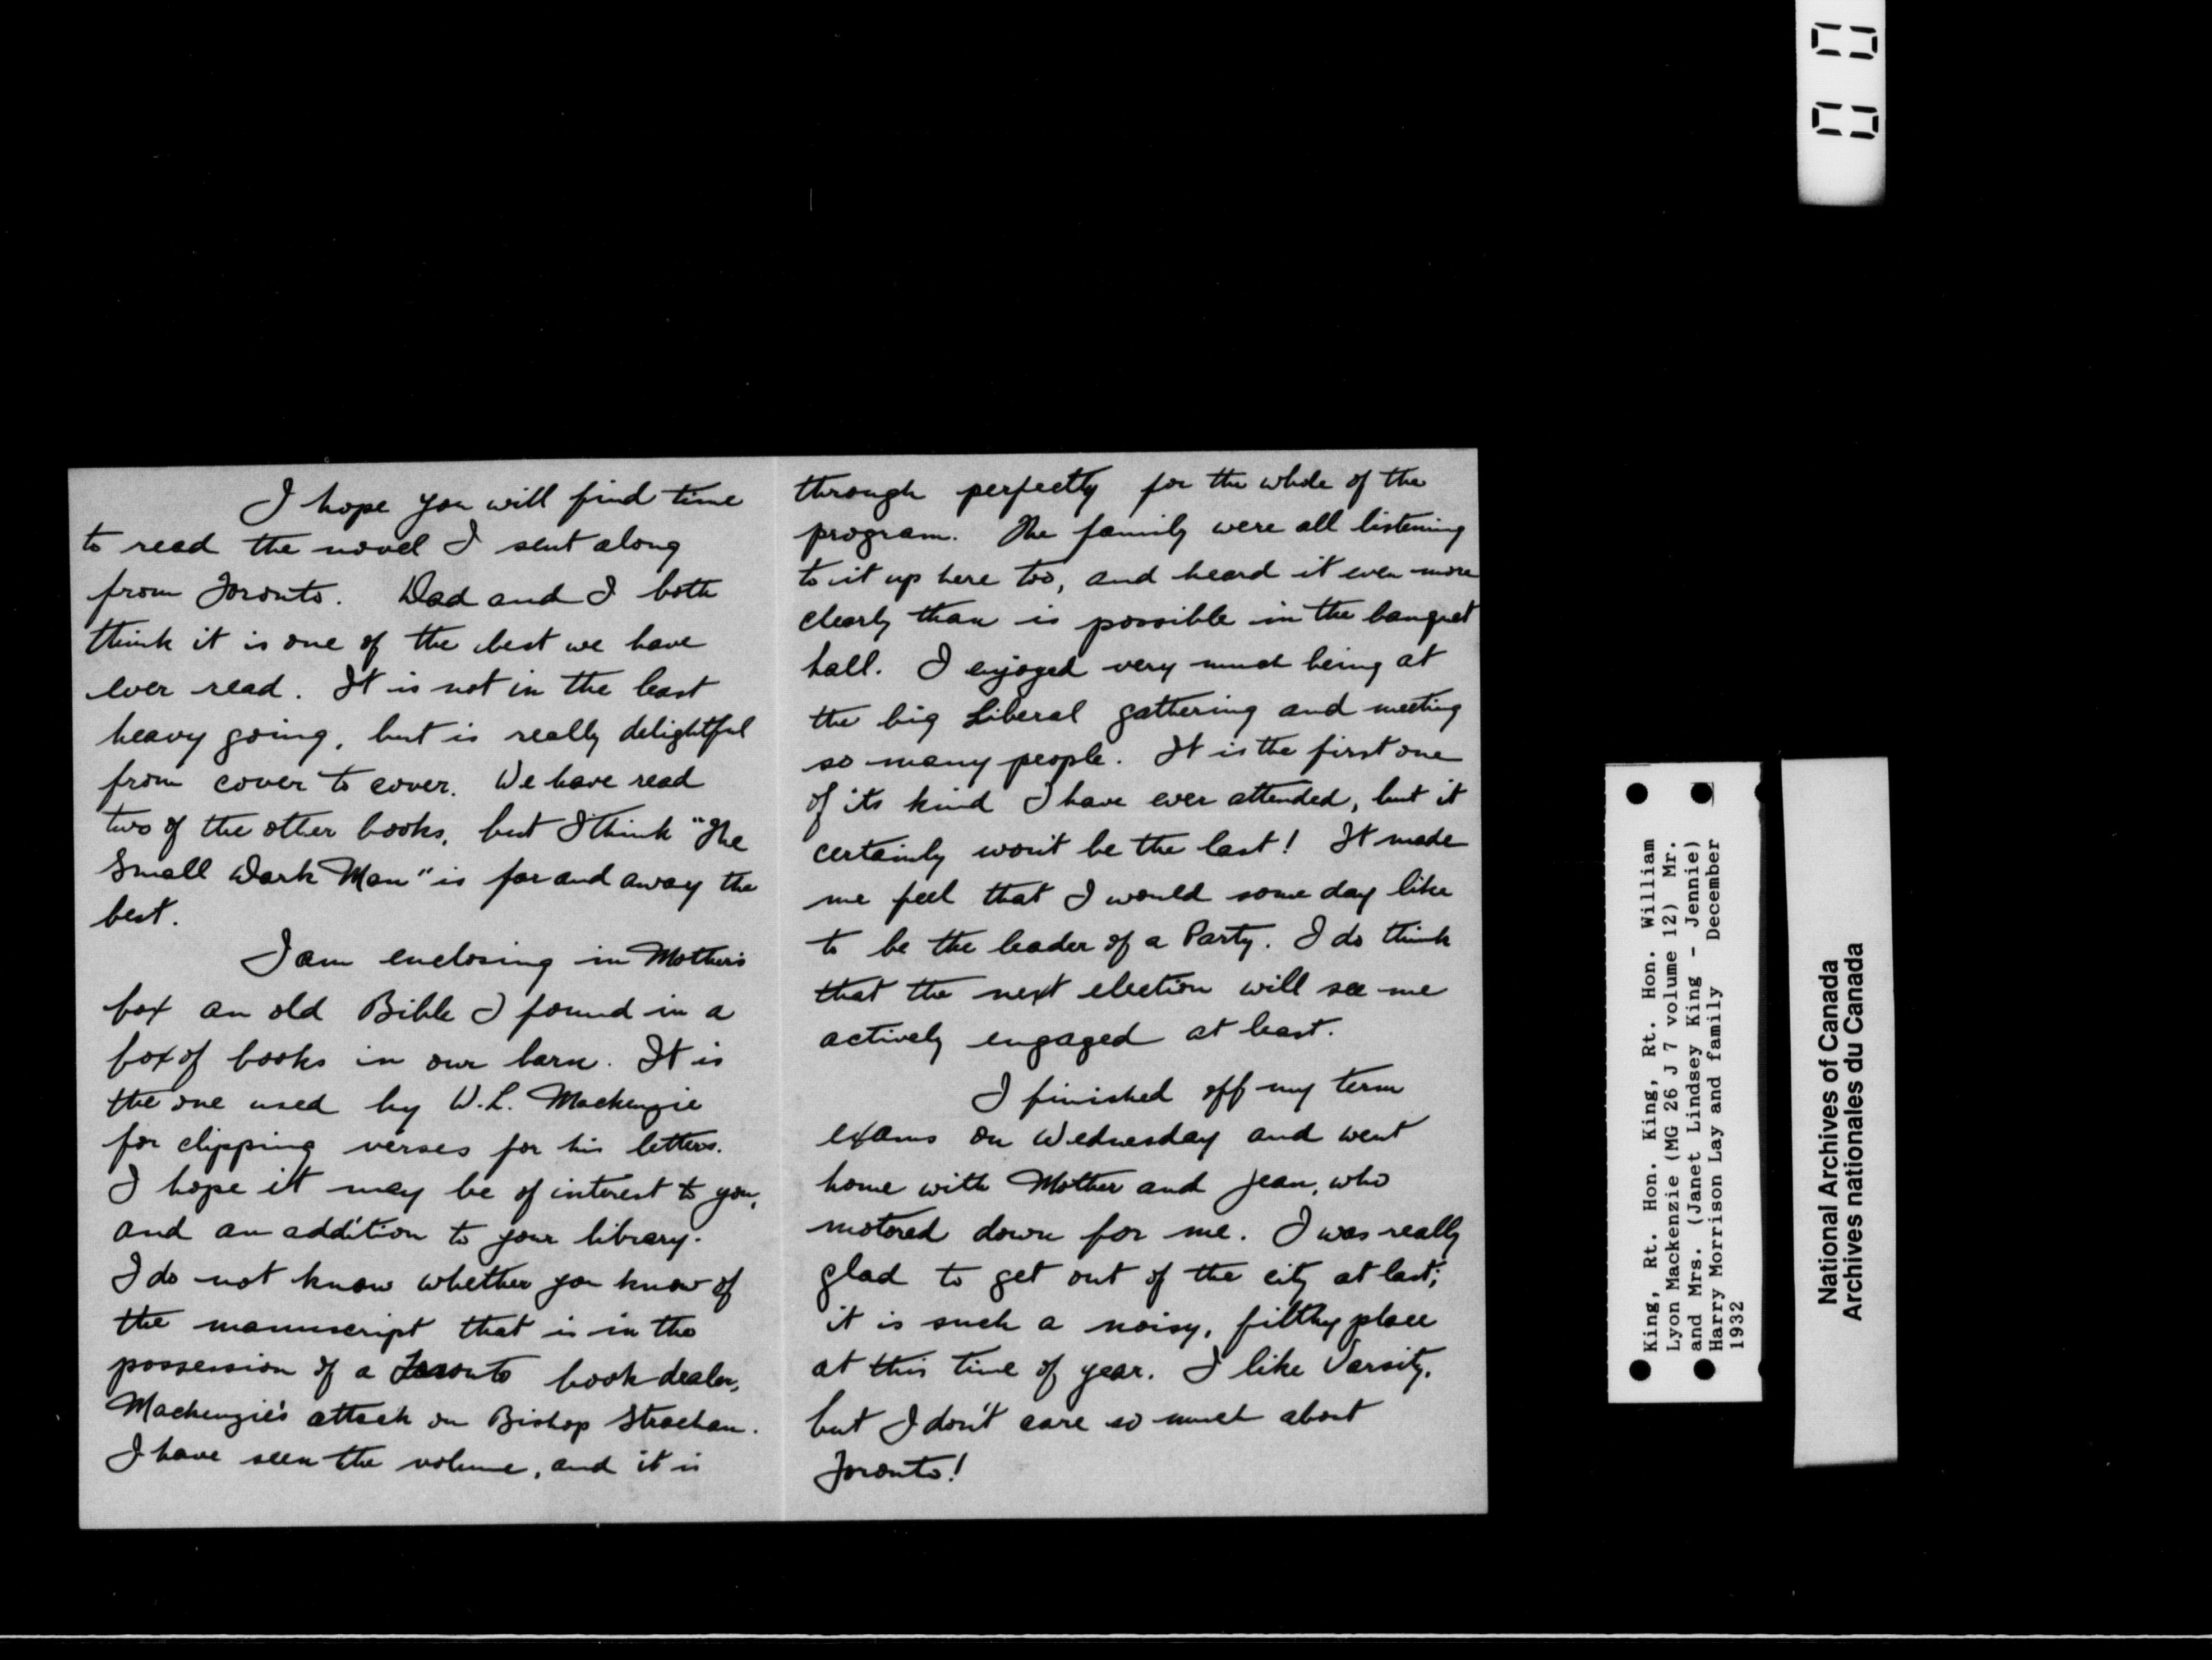 I hope you will find time
to read the novel I sent along
from Toronto. Dad and I both
think it is one of the best we have
ever read. It is not in the least
heavy going, but is really delightful
from cover to cover. We have read
two of the other books, but I think "The
Small Dark Man" is far and away the
best.
I am enclosing in Mother's
box an old Bible I found in a
box of books in our barn. It is
the one used by W.L. Mackenzie
for clipping verses for his letters.
I hope it may be of interest to you,
and an addition to your library.
I do not know whether you know of
the manuscript that is in the
possession of a Toronto book-dealer,
Mackenzie's attack on Bishop Strachan.
I have seen the volume, and it is
through perfectly for the whole of the
program. The family were all listening
to it up here too, and heard it even more
clearly than is possible in the banquet
hall. I enjoyed very much being at
the big Liberal gathering and meeting
so many people. It is the first one
of its kind I have ever attended, but it
certainly won't be the last! It made
me feel that I would some day like
to be the leader of a Party. I do think
that the next election will see me
actively engaged at least.
I finished off my term
exams on Wednesday and went
home with Mother and Jean, who
motored down for me. I was really
glad to get out of the city at last;
it is such a noisy, filthy place
at this time of year. I like Varsity,
but I don't care so much about
Toronto!
King, Rt. Hon. King, Rt. Hon. William
Lyon Mackenzie (MG 26 J 7 volume 12) Mr.
and Mrs. (Janet Lindsey King - Jennie)
Harry Morrison Lay and family December
1932
National Archives of Canada
Archives nationales du Canada